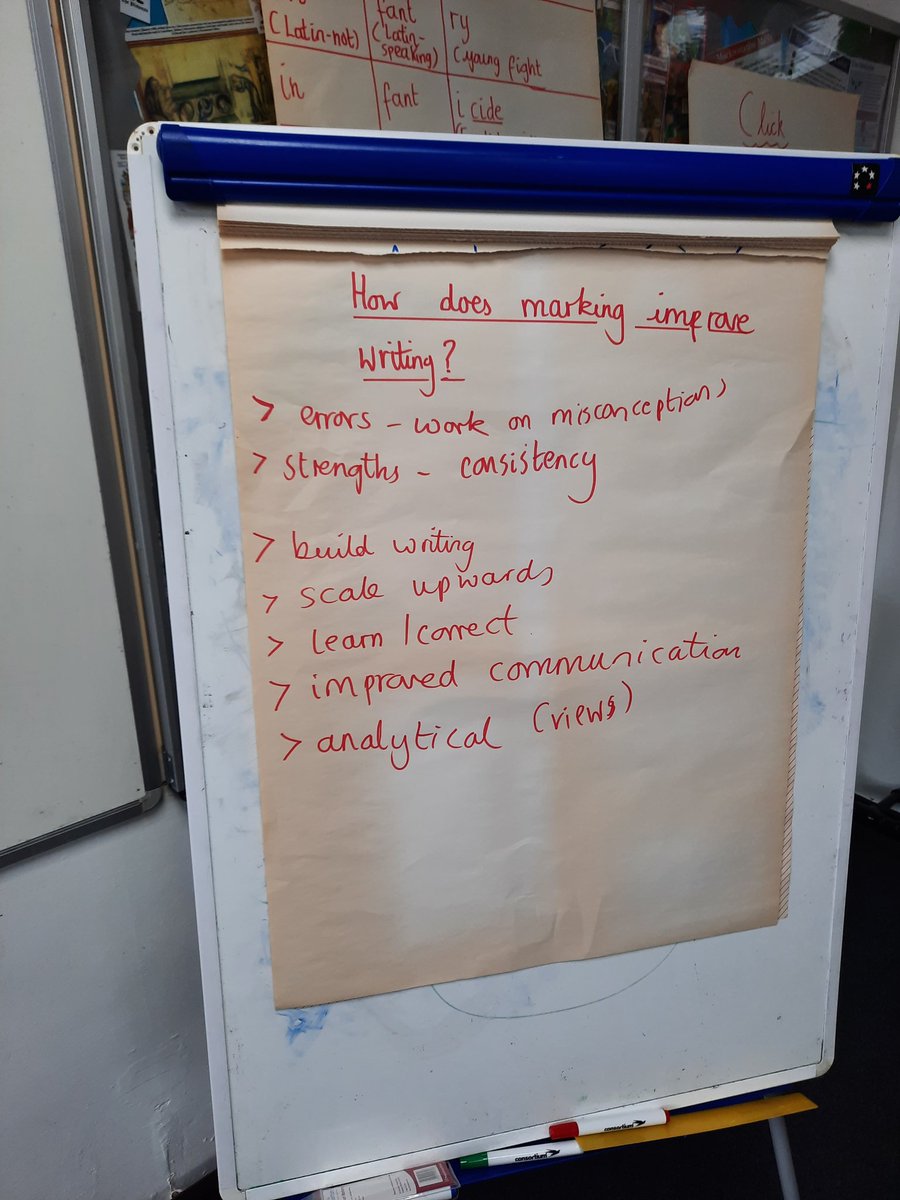 (Latin-not)
fant
(Latin-
speaking)
ry
(young fight
in
fant
icide
Click
How does marking improve
writing?
> errors - work on misconceptions
> strengths - consistency
> build writing
> scale upwards
> learn / correct
> improved communication
> analytical (views)
consortium
consortium